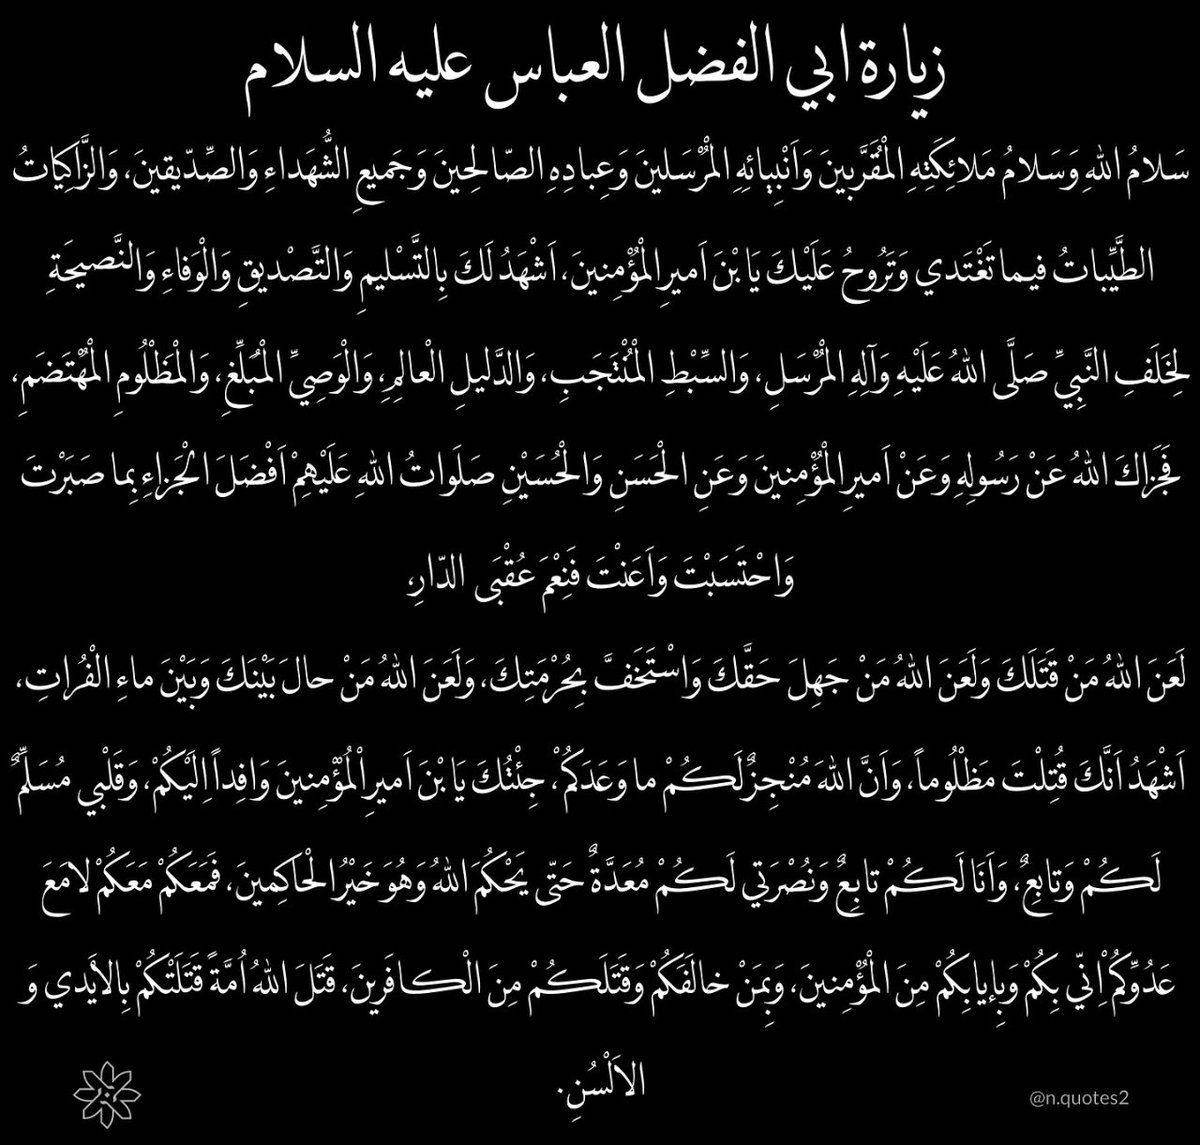 زيارة ابي الفضل العباس عليه السلام
سَلامُ اللهِ وَسَلامُ مَلائِكَتِهِ الْمُقَرَّبينَ وَاَنْبِيائِهِ الْمُرْسَلينَ وَعِبادِهِ الصّالِحينَ وَجَميعِ الشُّهَداءِ وَالصِّدّيقينَ، وَالزَّاكِياتُ
الطَّيِّباتُ فيما تَغْتَدي وَتَرُوحُ عَلَيْكَ يَا بْنَ اَميرِ الْمُؤْمِنينَ، اَشْهَدُ لَكَ بِالتَّسْليمِ وَالتَّصْديقِ وَالْوَفاءِ وَالنَّصيحَةِ
لِخَلَفِ النَّبِيِّ صَلَّى اللهُ عَلَيْهِ وَآلِهِ الْمُرْسَلِ، وَالسِّبْطِ الْمُنْتَجَبِ، وَالدَّليلِ الْعالِمِ، وَالْوَصِيِّ الْمُبَلِّغِ، وَالْمَظْلُومِ الْمُهْتَضَمِ،
فَجَزاكَ اللهُ عَنْ رَسُولِهِ وَعَنْ اَميرِ الْمُؤْمِنينَ وَعَنِ الْحَسَنِ وَالْحُسَيْنِ صَلَواتُ اللهِ عَلَيْهِمْ اَفْضَلَ الْجَزاءِ بِما صَبَرْتَ
وَاحْتَسَبْتَ وَاَعَنْتَ فَنِعْمَ عُقْبَى الدّارِ،
لَعَنَ اللهُ مَنْ قَتَلَكَ وَلَعَنَ اللهُ مَنْ جَهِلَ حَقَّكَ وَاسْتَخَفَّ بِحُرْمَتِكَ، وَلَعَنَ اللهُ مَنْ حالَ بَيْنَكَ وَبَيْنَ ماءِ الْفُراتِ،
اَشْهَدُ اَنَّكَ قُتِلْتَ مَظْلُوماً، وَاَنَّ اللهَ مُنْجِزٌ لَكُمْ ما وَعَدَكُمْ، جِئْتُكَ يَا بْنَ اَميرِ الْمُؤْمِنينَ وَافِداً اِلَيْكُمْ، وَقَلْبي مُسَلِّمٌ
لَكُمْ وَتابِعٌ، وَاَنَا لَكُمْ تابِعٌ وَنُصْرَتي لَكُمْ مُعَدَّةٌ حَتّى يَحْكُمَ اللهُ وَهُوَ خَيْرُ الْحاكِمينَ، فَمَعَكُمْ مَعَكُمْ لا مَعَ
عَدُوِّكُمْ اِنّي بِكُمْ وَبِإيابِكُمْ مِنَ الْمُؤْمِنينَ، وَبِمَنْ خالَفَكُمْ وَقَتَلَكُمْ مِنَ الْكافَرينَ، قَتَلَ اللهُ اُمَّةً قَتَلَتْكُمْ بِالاَيْدي وَ
الاَلْسُنِ.
@n.quotes2